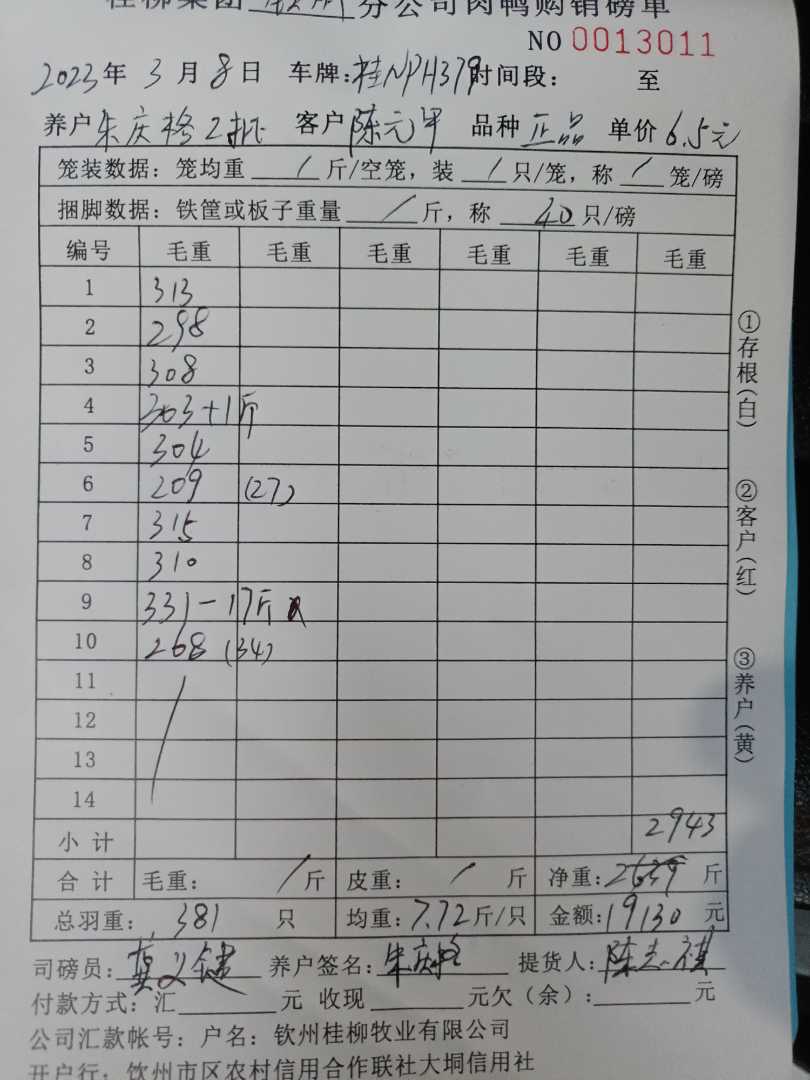 桂柳集团 钦州 分公司肉鸭购销磅单
NO 0013011
2023年 3月 8日 车牌:桂NPH379 时间段: 至
养户 朱庆格2批 客户 陈元甲 品种 正品 单价 6.5元
笼装数据：笼均重 / 斤/空笼，装 / 只/笼，称 / 笼/磅
捆脚数据：铁筐或板子重量 / 斤，称 40 只/磅
编号 毛重 毛重 毛重 毛重 毛重 毛重
1 313
2 298
3 308
4 303+1斤
5 304
6 209 (27)
7 315
8 310
9 331-17斤
10 268 (34)
11
12
13
14
小 计 2943
合 计 毛重： / 斤 皮重： / 斤 净重: 斤
总羽重： 381 只 均重：7.72斤/只 金额:19130元
司磅员: 养户签名:朱庆格 提货人:陈志祺
付款方式：汇 元 收现 元欠（余）: 元
公司汇款帐号：户名：钦州桂柳牧业有限公司
开户行：钦州市区农村信用合作联社大垌信用社
①存根(白)
②客户(红)
③养户(黄)